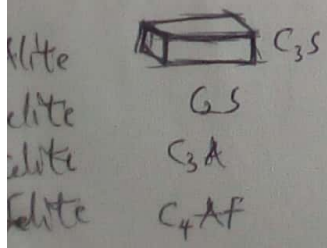 Alite C₃S
elite C₂S
elite C₃A
Felite C₄AF